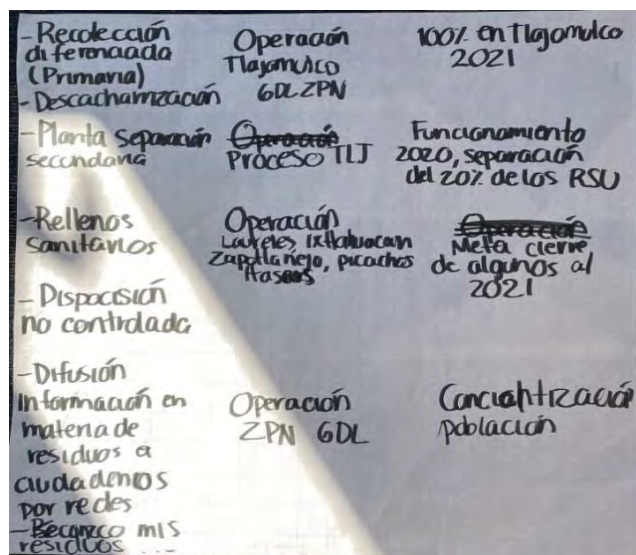 - Recolección
diferenciada
(Primaria)
- Descacharrización
Operación
Tlajomulco
GDL ZPN
100% en Tlajomulco
2021
- Planta separación
secundaria
Operación
Proceso TLJ
Funcionamiento
2020, separación
del 20% de los RSU
- Rellenos
sanitarios
Operación
Laureles, Ixtlahuacan
Zapotlanejo, picachos
Hasars
Operación
Meta cierre
de algunos al
2021
- Disposición
no controlada
- Difusión
Información en
materia de
residuos a
ciudadanos
por redes
- Reconozco mis
residuos ...
Operación
ZPN GDL
Concientización
población